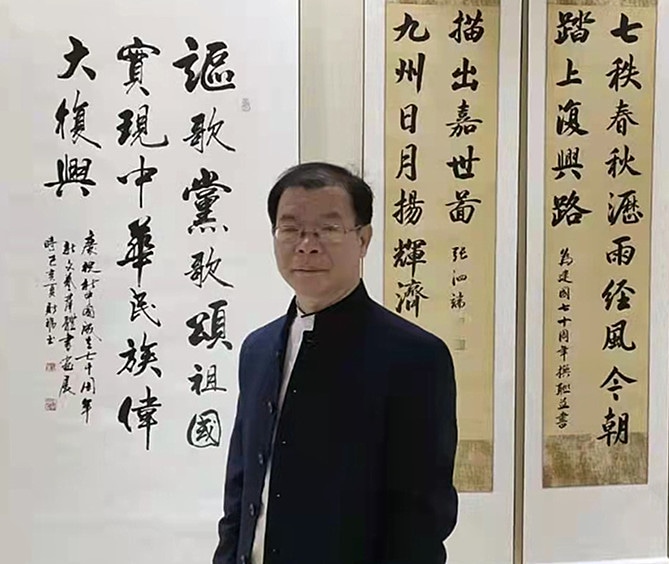 七秩春秋瀝雨经風今朝
踏上復興路
为建國七十周年撰聯並書
九州日月揚輝濟
描出嘉世啚
张泗
謳歌黨歌頌祖國
實現中華民族偉
大復興
慶祝新中國成立七十周年
新文藝群體書画展
時己亥夏